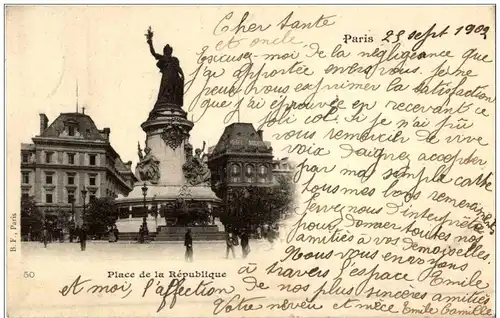 Cher Tante
et oncle
Paris 25 sept 1902
Excusez-moi de la négligeance que
j'ai apportée envers vous. Je ne
peux vous exprimer la satisfaction
que j'ai éprouvée en recevant ce
joli col. Si je n'ai pu
vous remercier de vive
voix daignez accepter
par ma simple carte
tous mes bons
Je me nous
pour donner toutes nos
amitiés à vos demoiselles.
Nous vous envoyons
à travers l'espace Emile
et moi, l'affection de nos plus sincères amitiés
Votre neveu et nièce Emile Camille
B. F., Paris
50
Place de la République